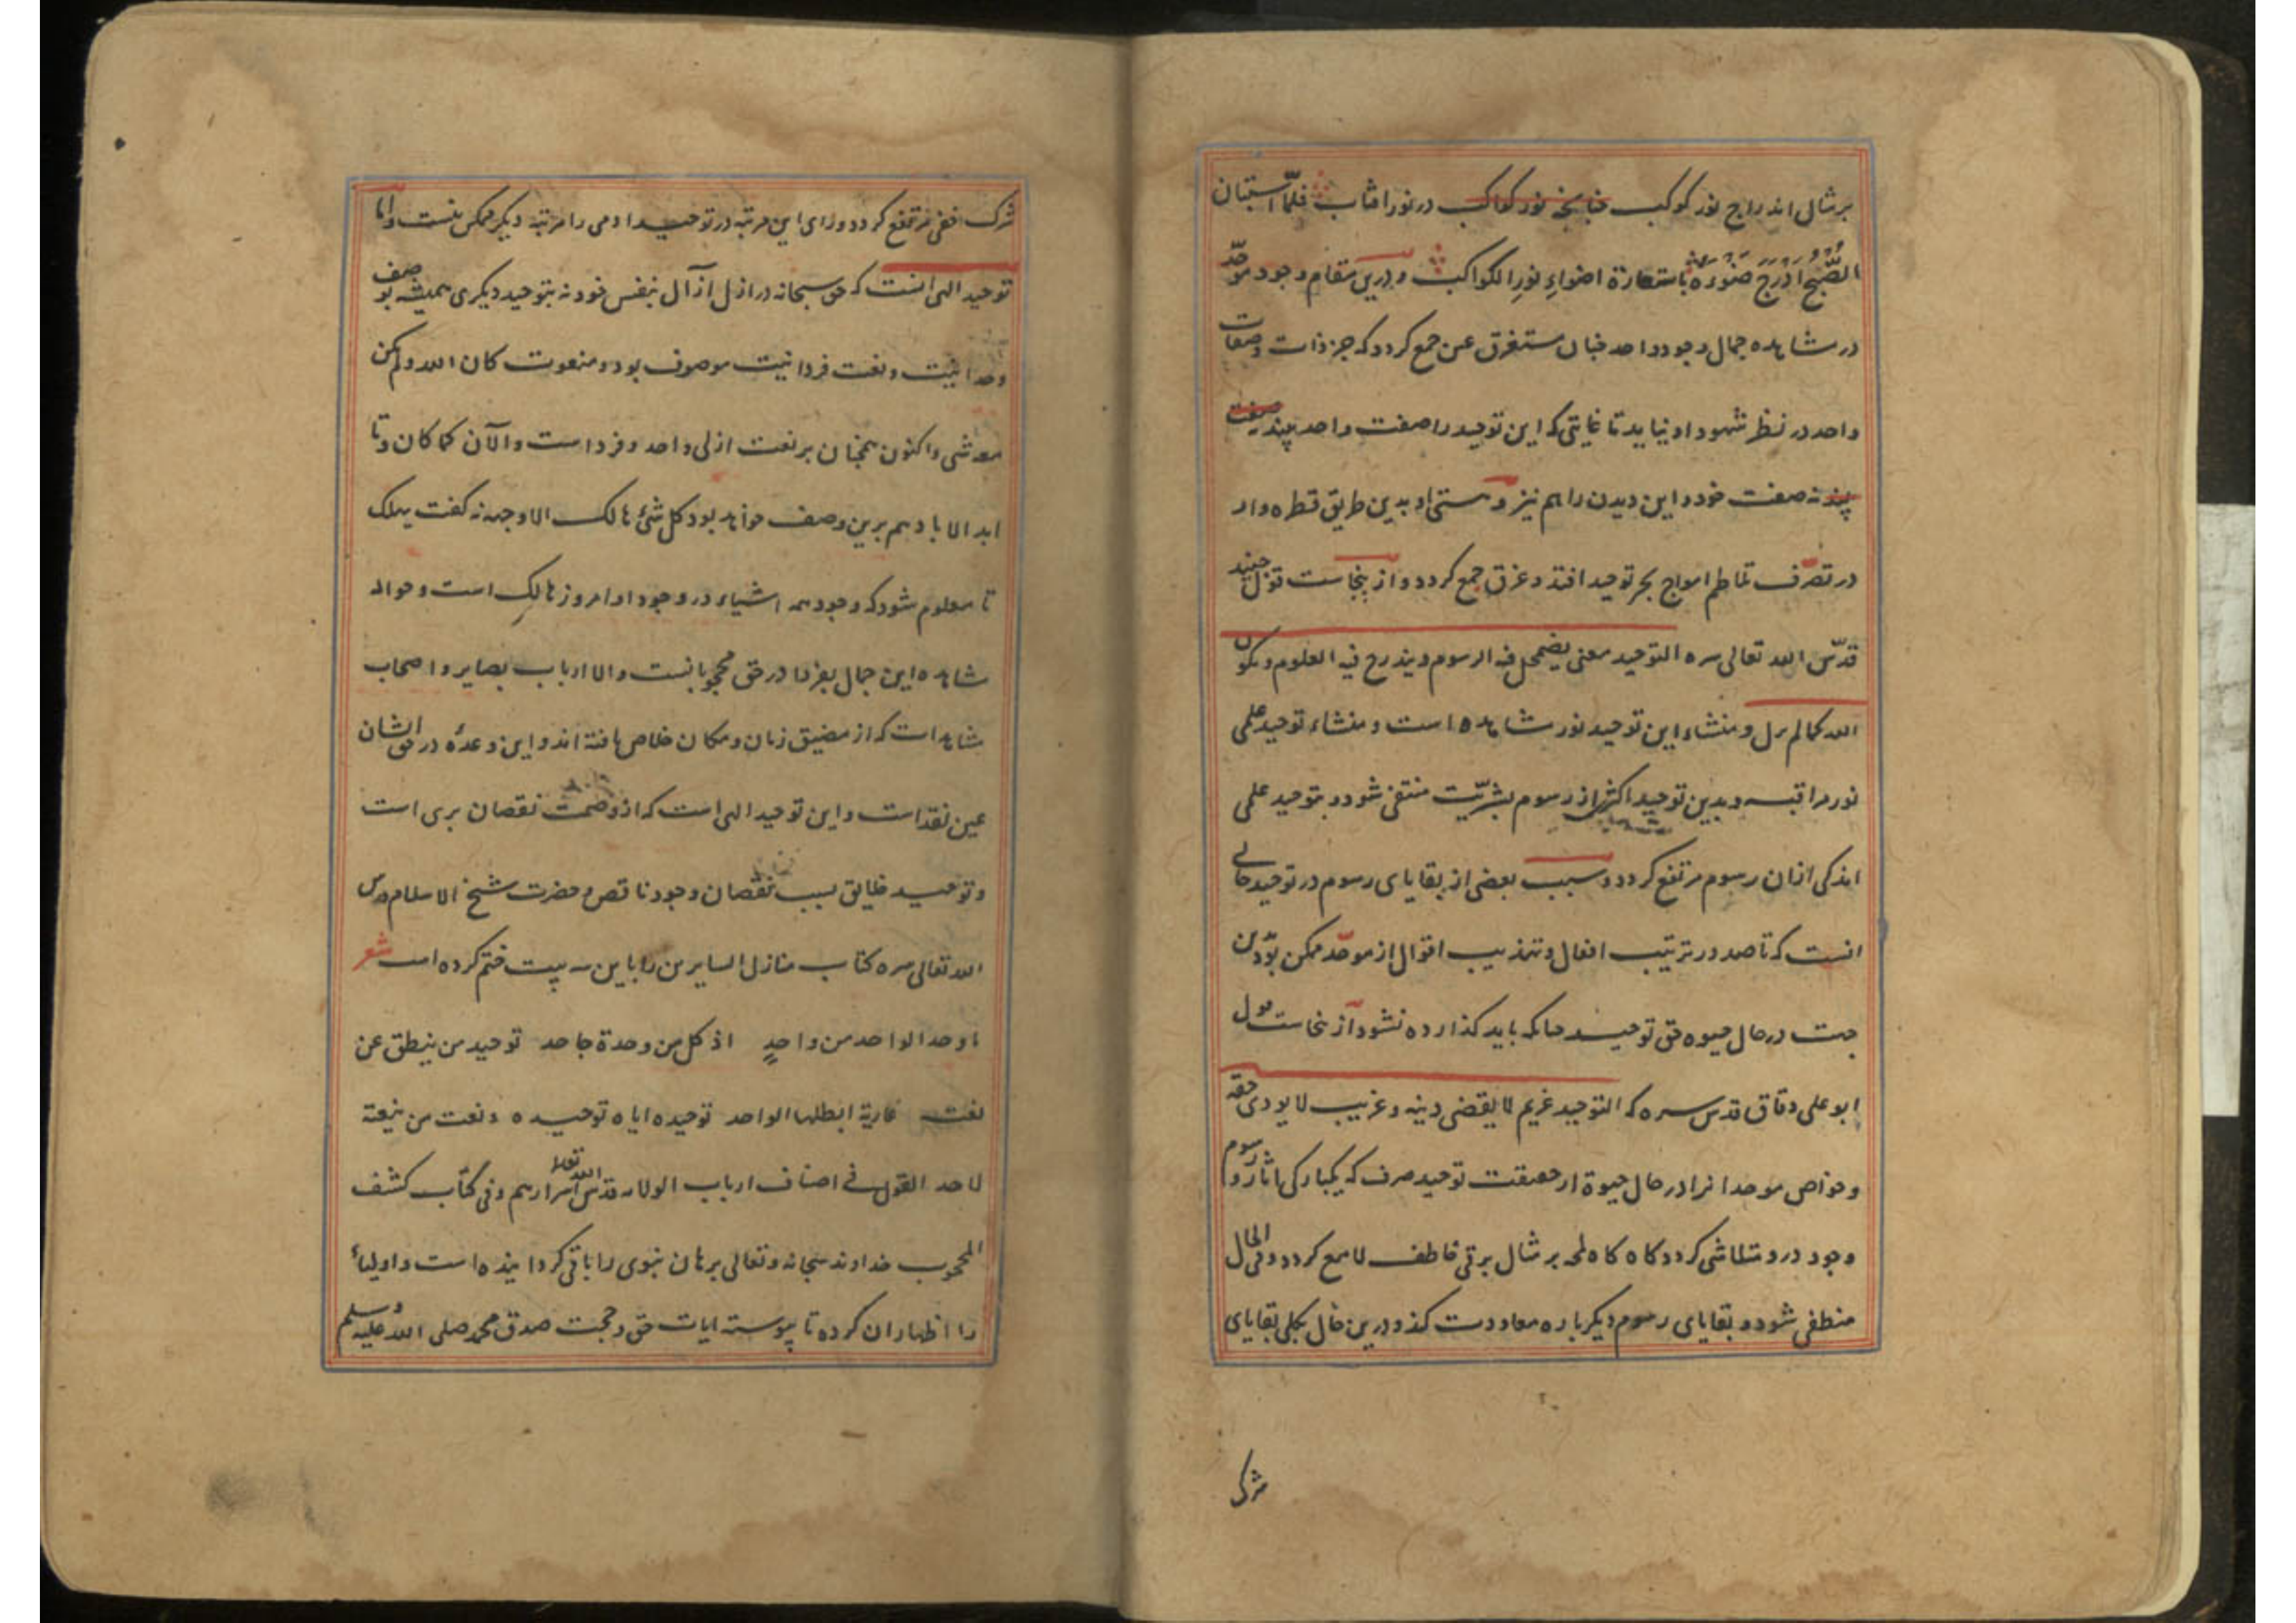 برمثال اندراج نور کوکب چنانچه نور کواکب در نور افتاب فلمّا استبان
الصُّبحُ اَدرَجَ ضَوْءُهُ باستعارة اضواءِ نورِ الکواکب و درین مقام وجود موحّد
در مشاهده جمال وجود واحد چنان مستغرق عین جمع کردد که جز ذات وصفات
واحد در نظر شهود او نیاید تا غایتی که این توحید را صفت واحد بیند صفت
بیند نه صفت خود و این دیدن را هم نیز و هستی او بدین طریق قطره وار
در تصرّف تلاطم امواج بحر توحید افتد و غرق جمع کردد و از ینجاست قول جنید
قدّس الله تعالی سره التوحید معنی یضمحل فیه الرسوم و یندرج فیه العلوم و یکون
الله کما لم یزل و منشاء این توحید نور مشاهده است و منشاء توحید علمی
نور مراقبه و بدین توحید اکثر از رسوم بشریّت منتفی شود و بتوحید علمی
اندکی ازان رسوم مرتفع کردد و سبب بعضی از بقایای رسوم در توحید حالی
انست که تا صدور ترتیب افعال و تهذیب اقوال از موحّد ممکن بود ین
جهت در حال حیوه حق توحید چنانکه باید کذارده نشود از ینجاست قول
ابو علی دقاق قدس سره که التوحید غریم لا یقضی دینه و غریب لا یودی حقه
و خواص موحدانرا در حال حیوة از حقیقت توحید صرف که یکبارکی اثار و رسوم
وجود درو متلاشی کردد کاه کاه لمحه برمثال برقی خاطف لامع کردد و فی الحال
منطفی شود و بقایای رسوم دیکر باره معاودت کند و درین حال بکلی بقایای
شرک
شرک خفی مرتفع کردد و ورای این مرتبه در توحید ادمی را مرتبه دیکر ممکن نیست و اما
توحید الهی انست که حق سبحانه در ازل ازآل بنفس خود نه بتوحید دیکری همیشه بوصف
وحدانیت و نعت فردانیت موصوف بود و منعوت کان الله ولم یکن
معه شی و اکنون همچنان برنعت ازلی واحد و فرد است والآن کما کان و تا
ابد الاباد هم برین وصف خواهد بود کل شئ هالک الا وجهه نه کفت یهلک
تا معلوم شود که وجود همه اشیاء در وجود او امروز هالکِ است و حواله
مشاهده این جمال بفردا در حق محجوبانست و الا ارباب بصایر و اصحاب
مشاهدات که از مضیق زمان و مکان خلاص یافته اند و این وعده در حق ایشان
عین نقد است و این توحید الهی است که از وصمت نقصان بری است
و توحید خلایق بسبب نقصان وجود ناقص و حضرت شیخ الاسلام قدس
الله تعالی سره کتاب منازل السایرین را باین سه بیت ختم کرده است شعر
ما وحد الواحد من واحدٍ اذ کل من وحدة جاحد توحید من ینطق عن
نعته عاریة ابطلها الواحد توحیده ایاه توحیده و نعت من ینعته
لاحد القول فی اصناف ارباب الولایه قدس الله تعالی اسرارهم و فی کتاب کشف
المحجوب خداوند سبحانه و تعالی برهان نبوی را باقی کردانیده است و اولیاء
را اظهار ان کرده تا پیوسته ایات حق و حجت صدق محمد صلی الله علیه وسلم